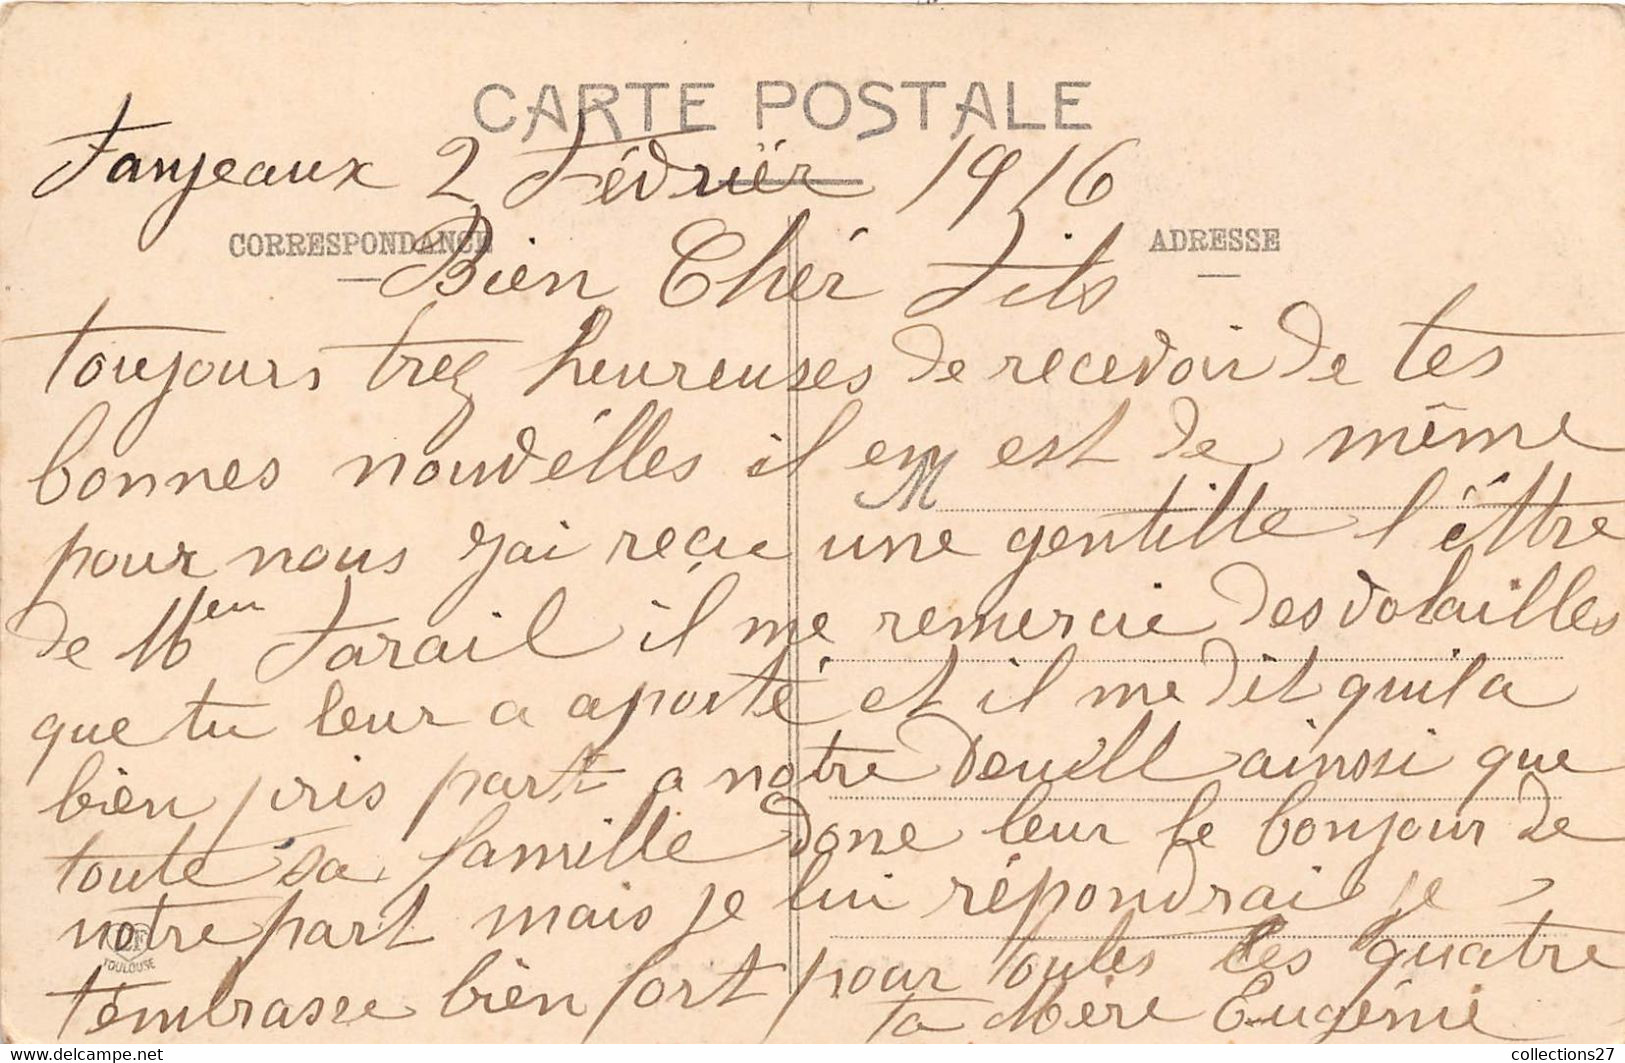 CARTE POSTALE
Fanjeaux 2 Févriër 1916
CORRESPONDANCE
ADRESSE
Bien Chér Fils
toujours trez heureuses de recevoir de tes
bonnes nouvélles il en est de même
M
pour nous jai recu une gentille l'éttre
de Mr Farail il me remercie des volailles
que tu leur a aporté et il me dit quil a
bien pris part a notre deuill ainssi que
toute sa famille done leur le bonjour de
notre part mais je lui répondrai je
témbrasse bien fort pour toutes les quatre
ta Mère Eugénie
TOULOUSE
collections27